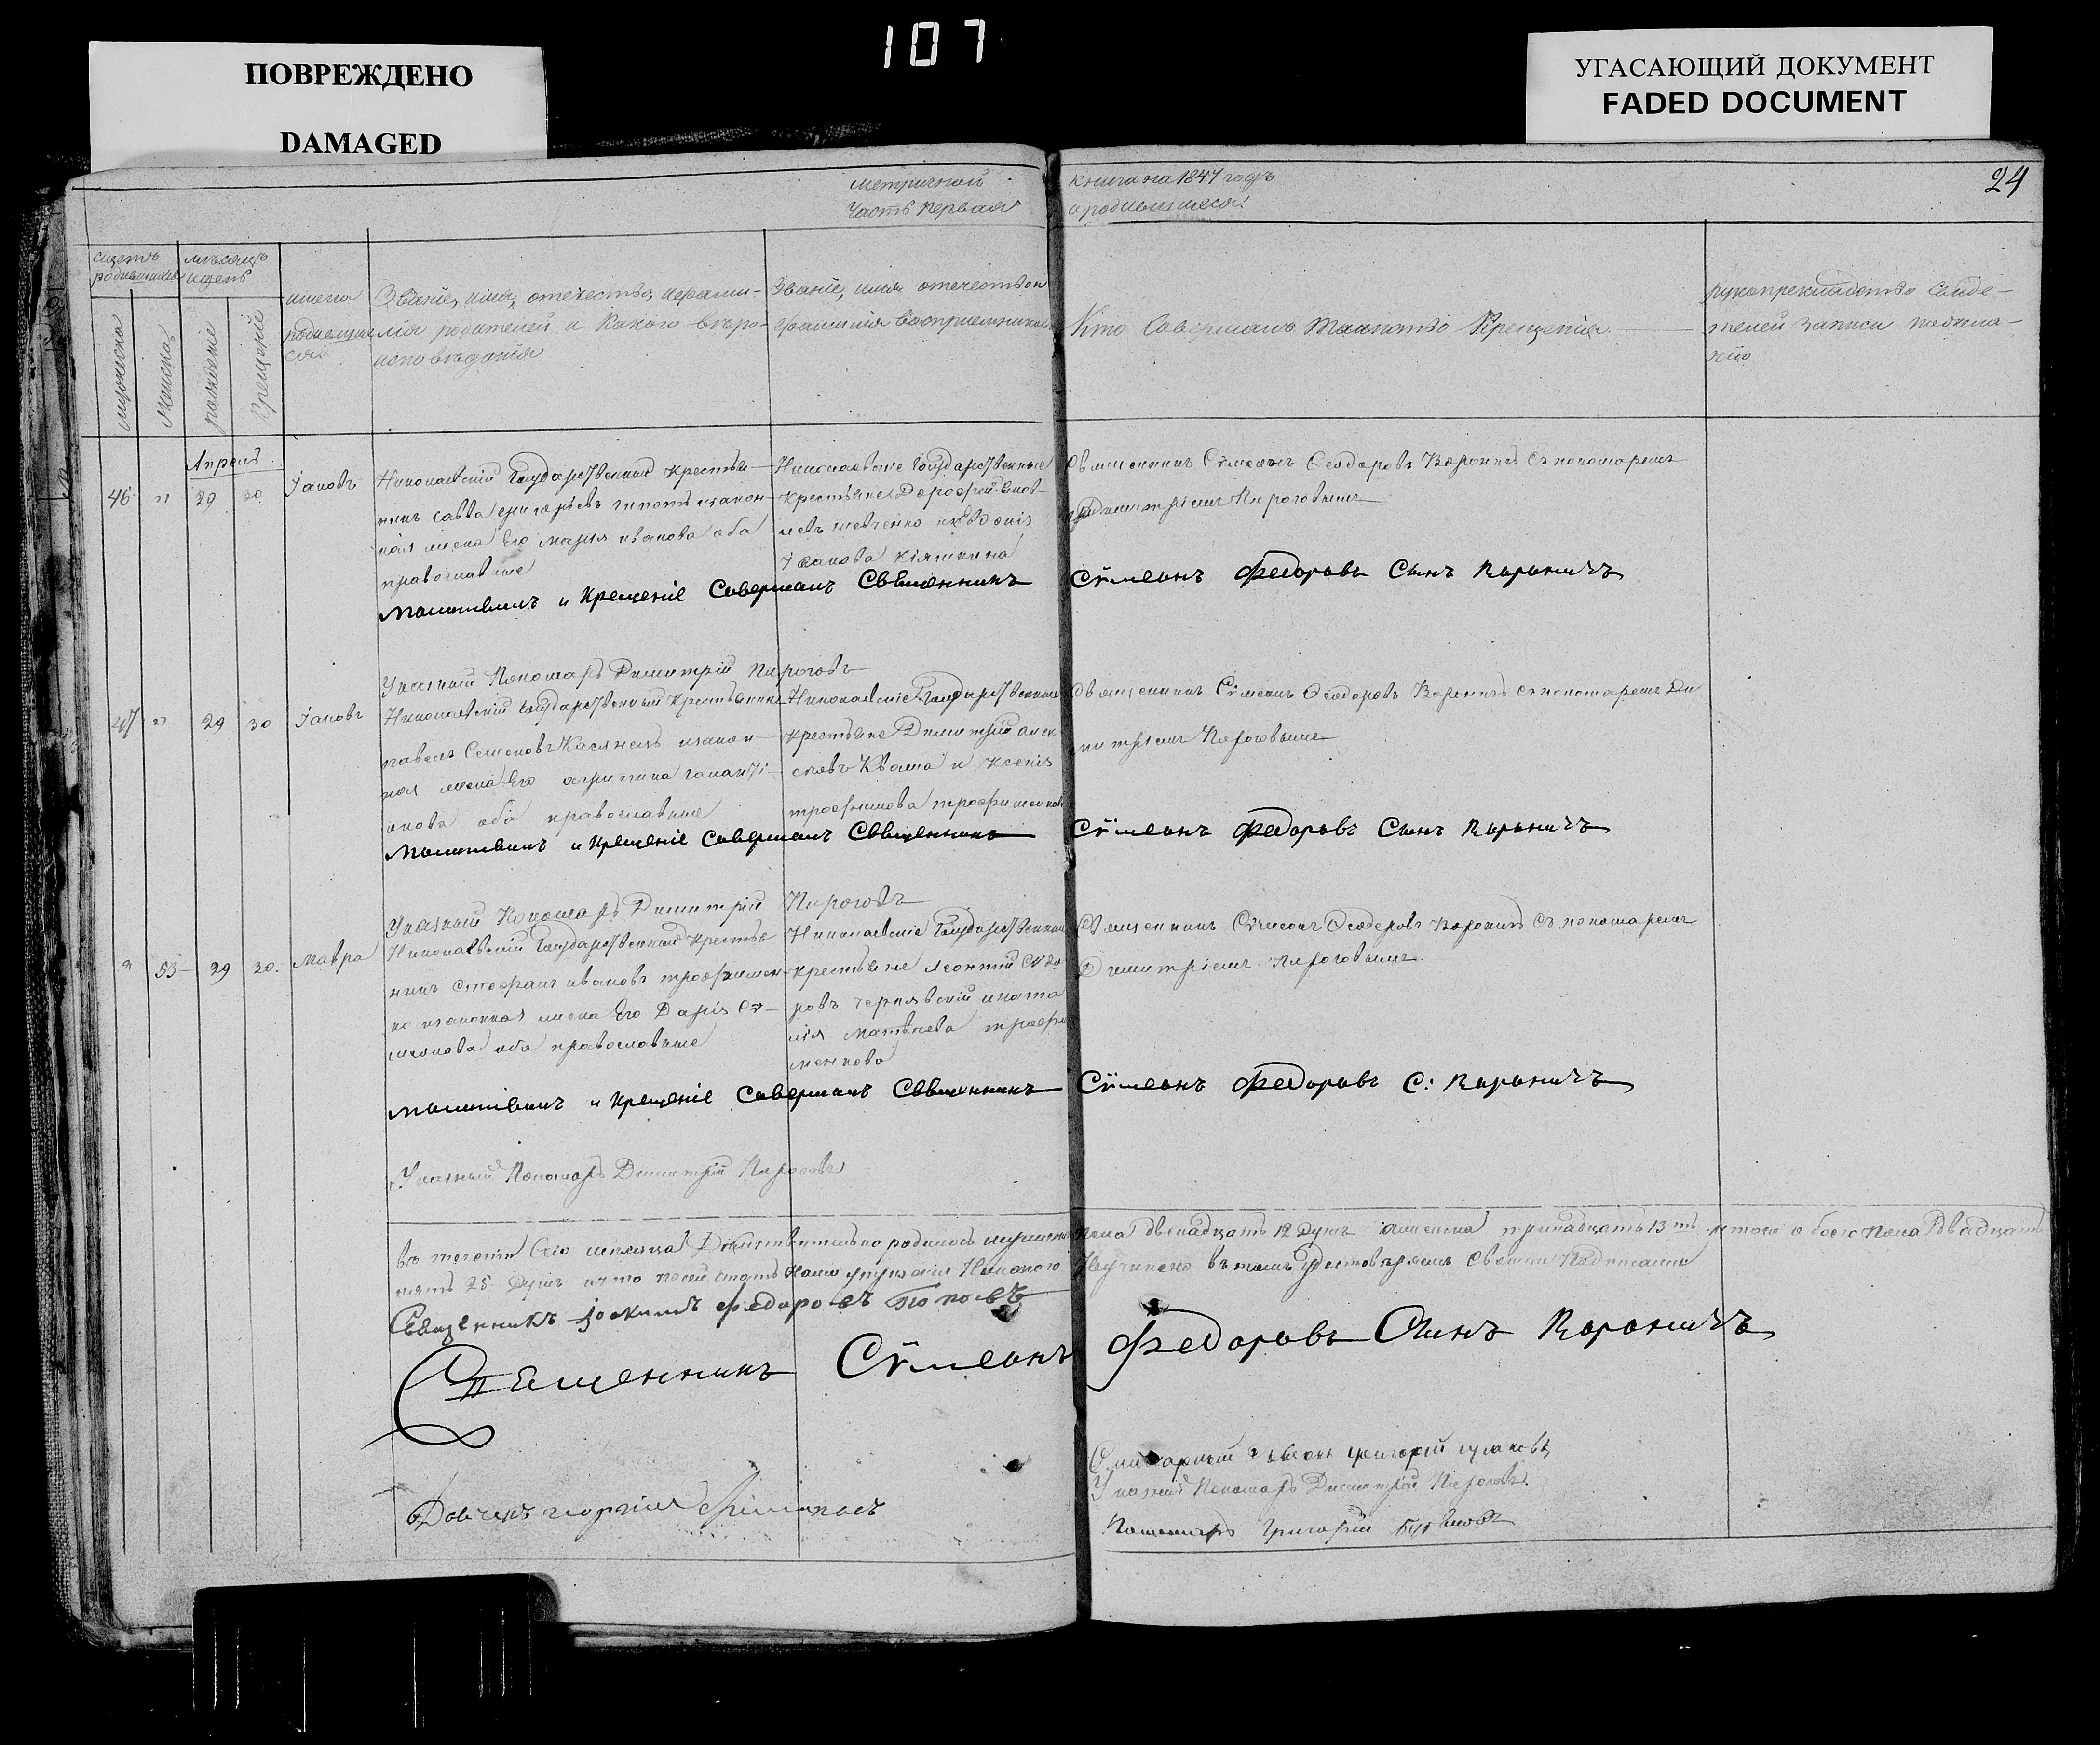 107
ПОВРЕЖДЕНО
DAMAGED
УГАСАЮЩИЙ ДОКУМЕНТ
FADED DOCUMENT
24
метрической книги на 1847 годъ
Часть первая о родившихся
счетъ родившихся
мѣсяцъ и день
мужеска
женска
рожденіе
крещеніе
имена родившихся
Званіе, имя, отечество, и фами-
лія родителей, и какого вѣро-
исповѣданія
Званіе, имя отечество и
фамилія воспріемниковъ
Кто совершалъ таинство крещенія
рукоприкладство свиде-
телей записи по жела-
нію
Апрель
46 " 29 30 Іаковъ
Николаевскій Государственный крестья-
нинъ Савва григорьевъ и закон-
ная жена его марія иванова оба
православные
Николаевскіе Государственные
крестьяне Дорофей
шевченко и Евдокія
Священникъ Сѵмеонъ Феодоровъ Вороничъ съ пономаремъ
Димитріемъ Пироговымъ
Молитвилъ и крещеніе совершалъ Священникъ Сѵмеонъ Федоровъ Сынъ Вороничъ
Указный Пономарь Димитрій Пироговъ
47 " 29 30 Іаковъ
Николаевскій Государственный крестьянинъ
павелъ Семеновъ и закон-
ная жена его агрипина
оба православные
Николаевскіе Государственные
крестьяне Димитрій алек
сѣевъ Кваша и Ксенія
трофимова
Священникъ Сѵмеонъ Феодоровъ Вороничъ съ пономаремъ Ди
митріемъ Пироговымъ
Молитвилъ и крещеніе совершалъ Священникъ Сѵмеонъ Федоровъ Сынъ Вороничъ
Указный Пономарь Димитрій Пироговъ
" 53 29 30. Мавра
Николаевскій Государственный крестья
нинъ стефанъ ивановъ трофимен-
ко и законная жена Его Дарія Се-
менова оба православные
Николаевскіе Государственные
крестьяне леонтій
чернявскій и ната
лія Матвѣева трофи
менкова
Священникъ Сѵмеонъ Феодоровъ Вороничъ съ пономаремъ
Димитріемъ Пироговымъ
Молитвилъ и крещеніе совершалъ Священникъ Сѵмеонъ Федоровъ С: Вороничъ
Указный Пономарь Димитрій Пироговъ
въ теченіи сего месяца Действительно родилось мужеска пола двенадцать 12 душъ а женска тринадцать 13 ть итого обоего пола двадцать
пять 25 душъ и что посей статьѣ упущенія Никакого Неучинено въ томъ удостоверяемъ своими Подписами
Священникъ Іоакимъ Федоровъ Поповъ
Священникъ Сѵмеонъ Федоровъ Сынъ Вороничъ
Дьячекъ георгій
григорій
Указный Пономарь Димитрій Пироговъ
Пономарь Григорій